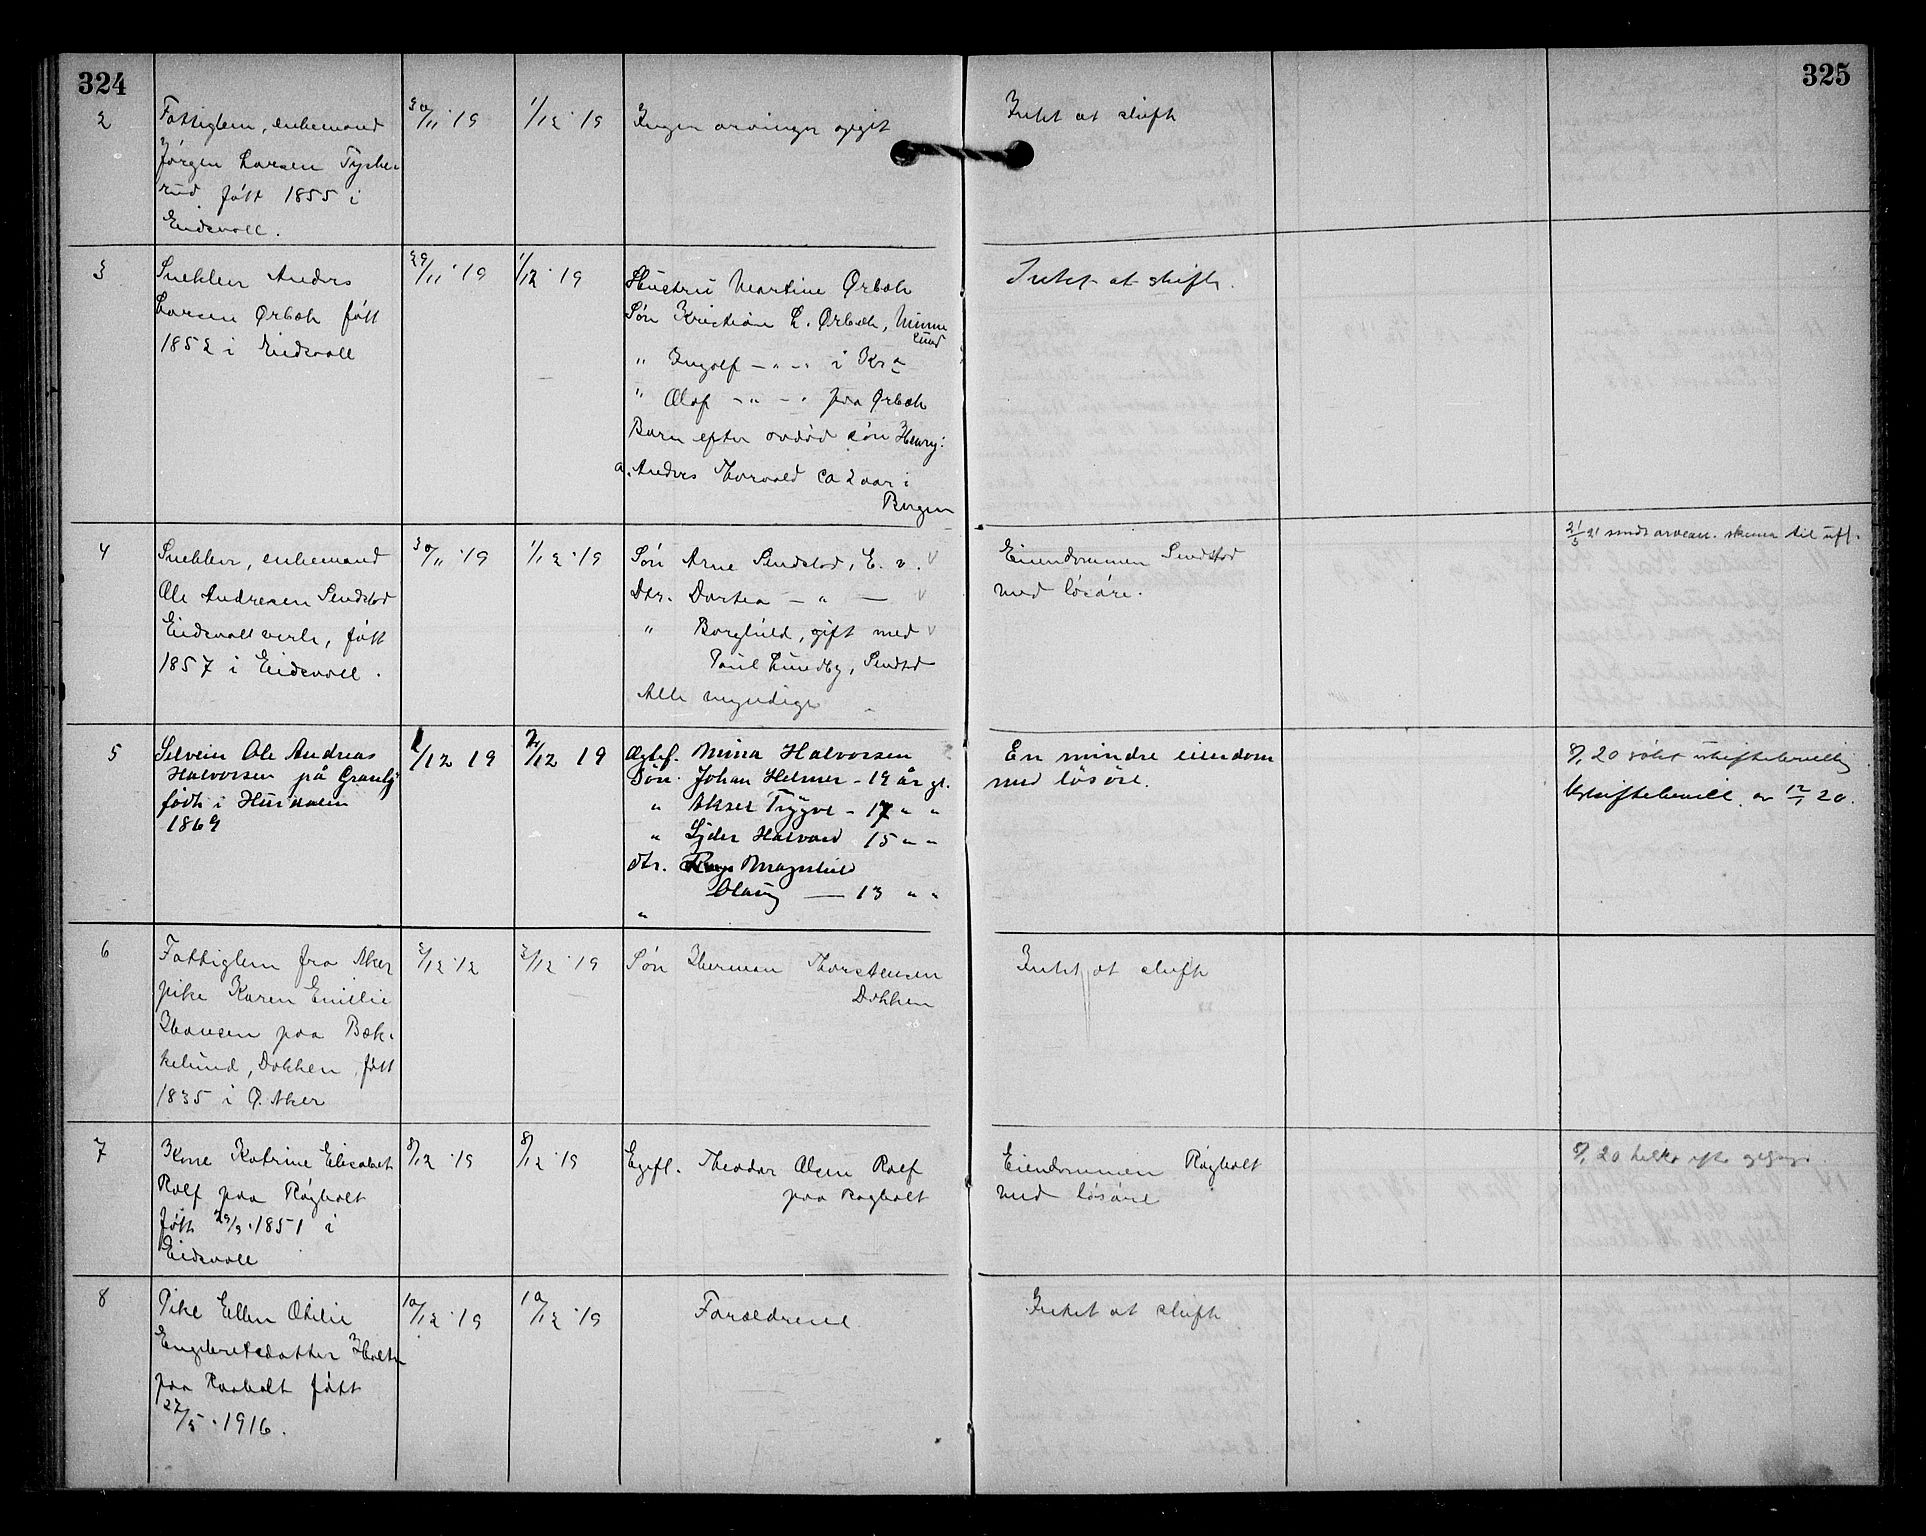 324
325
2
Fattiglem, enkemand
Jörgen Larsen Tyske-
rud, født 1855 i
Eidsvoll.
30/11 19
1/12 19
Ingen arvinger opgit
Intet at skifte
3
Snekker Anders
Larsen Ørbæk født
1852 i Eidsvoll
29/11 19
1/12 19
Hustru Martine Ørbæk
Søn Kristian L. Ørbæk, Minne
sund
" Ingolf — " — i Kr a
" Olaf — " — paa Ørbæk
Barn efter avdød søn Henry:
a. Anders Thorvald ca 2 aar i
Bergen
Intet at skifte.
4
Snekker, enkemand
Ole Andresen Sendstad
Eidsvollverk, født
1857 i Eidsvoll.
30/11 19
1/12 19
Søn Arne Sendstad, E. v. v
Dtr. Dortea — " — v
" Borghild, gift med v
Paul Lundby, Sendstd
Alle myndige
Eiendommen Sendstad
med løsøre.
21/5 21 sendt arveavg. skema til utf.
5
Selveier Ole Andreas
Halvorsen på Granly
født i Hurdalen
1869
1/12 19
2/12 19
Ægtef. Mina Halvorsen
Søn. Johan Helmer - 19 år gl.
" Aksel Trygve - 17 " "
" Lyder Halvard 15 " "
dtr. Magnhild
Olaug — 13 " "
"
En mindre eiendom
med løsøre.
9/1 20 søkt uskiftebevilling
Uskiftebevill. av 12/1 20.
6
Fattiglem fra Aker
pike Karen Emilie
Hansen paa Bæk-
kelund, Dokken, født
1835 i Ø. Aker
3/12 12
3/12 19
Søn Herman Thorstensen
Dokken
Intet at skifte
7
Kone Katrine Elisabet
Rolf paa Rågholt
født 29/9 1851 i
Eidsvoll
8/12 19
8/12 19
Egtfl. Theodor Olsen Rolf
paa Ragholt
Eiendommen Rågholt
med løsøre
9/1 20
8
Pike Ellen Otilie
Engebretsdatter Holter
paa Raaholt født
27/5 1916.
10/12 19
10/12 19
Forældrene
Intet at skifte